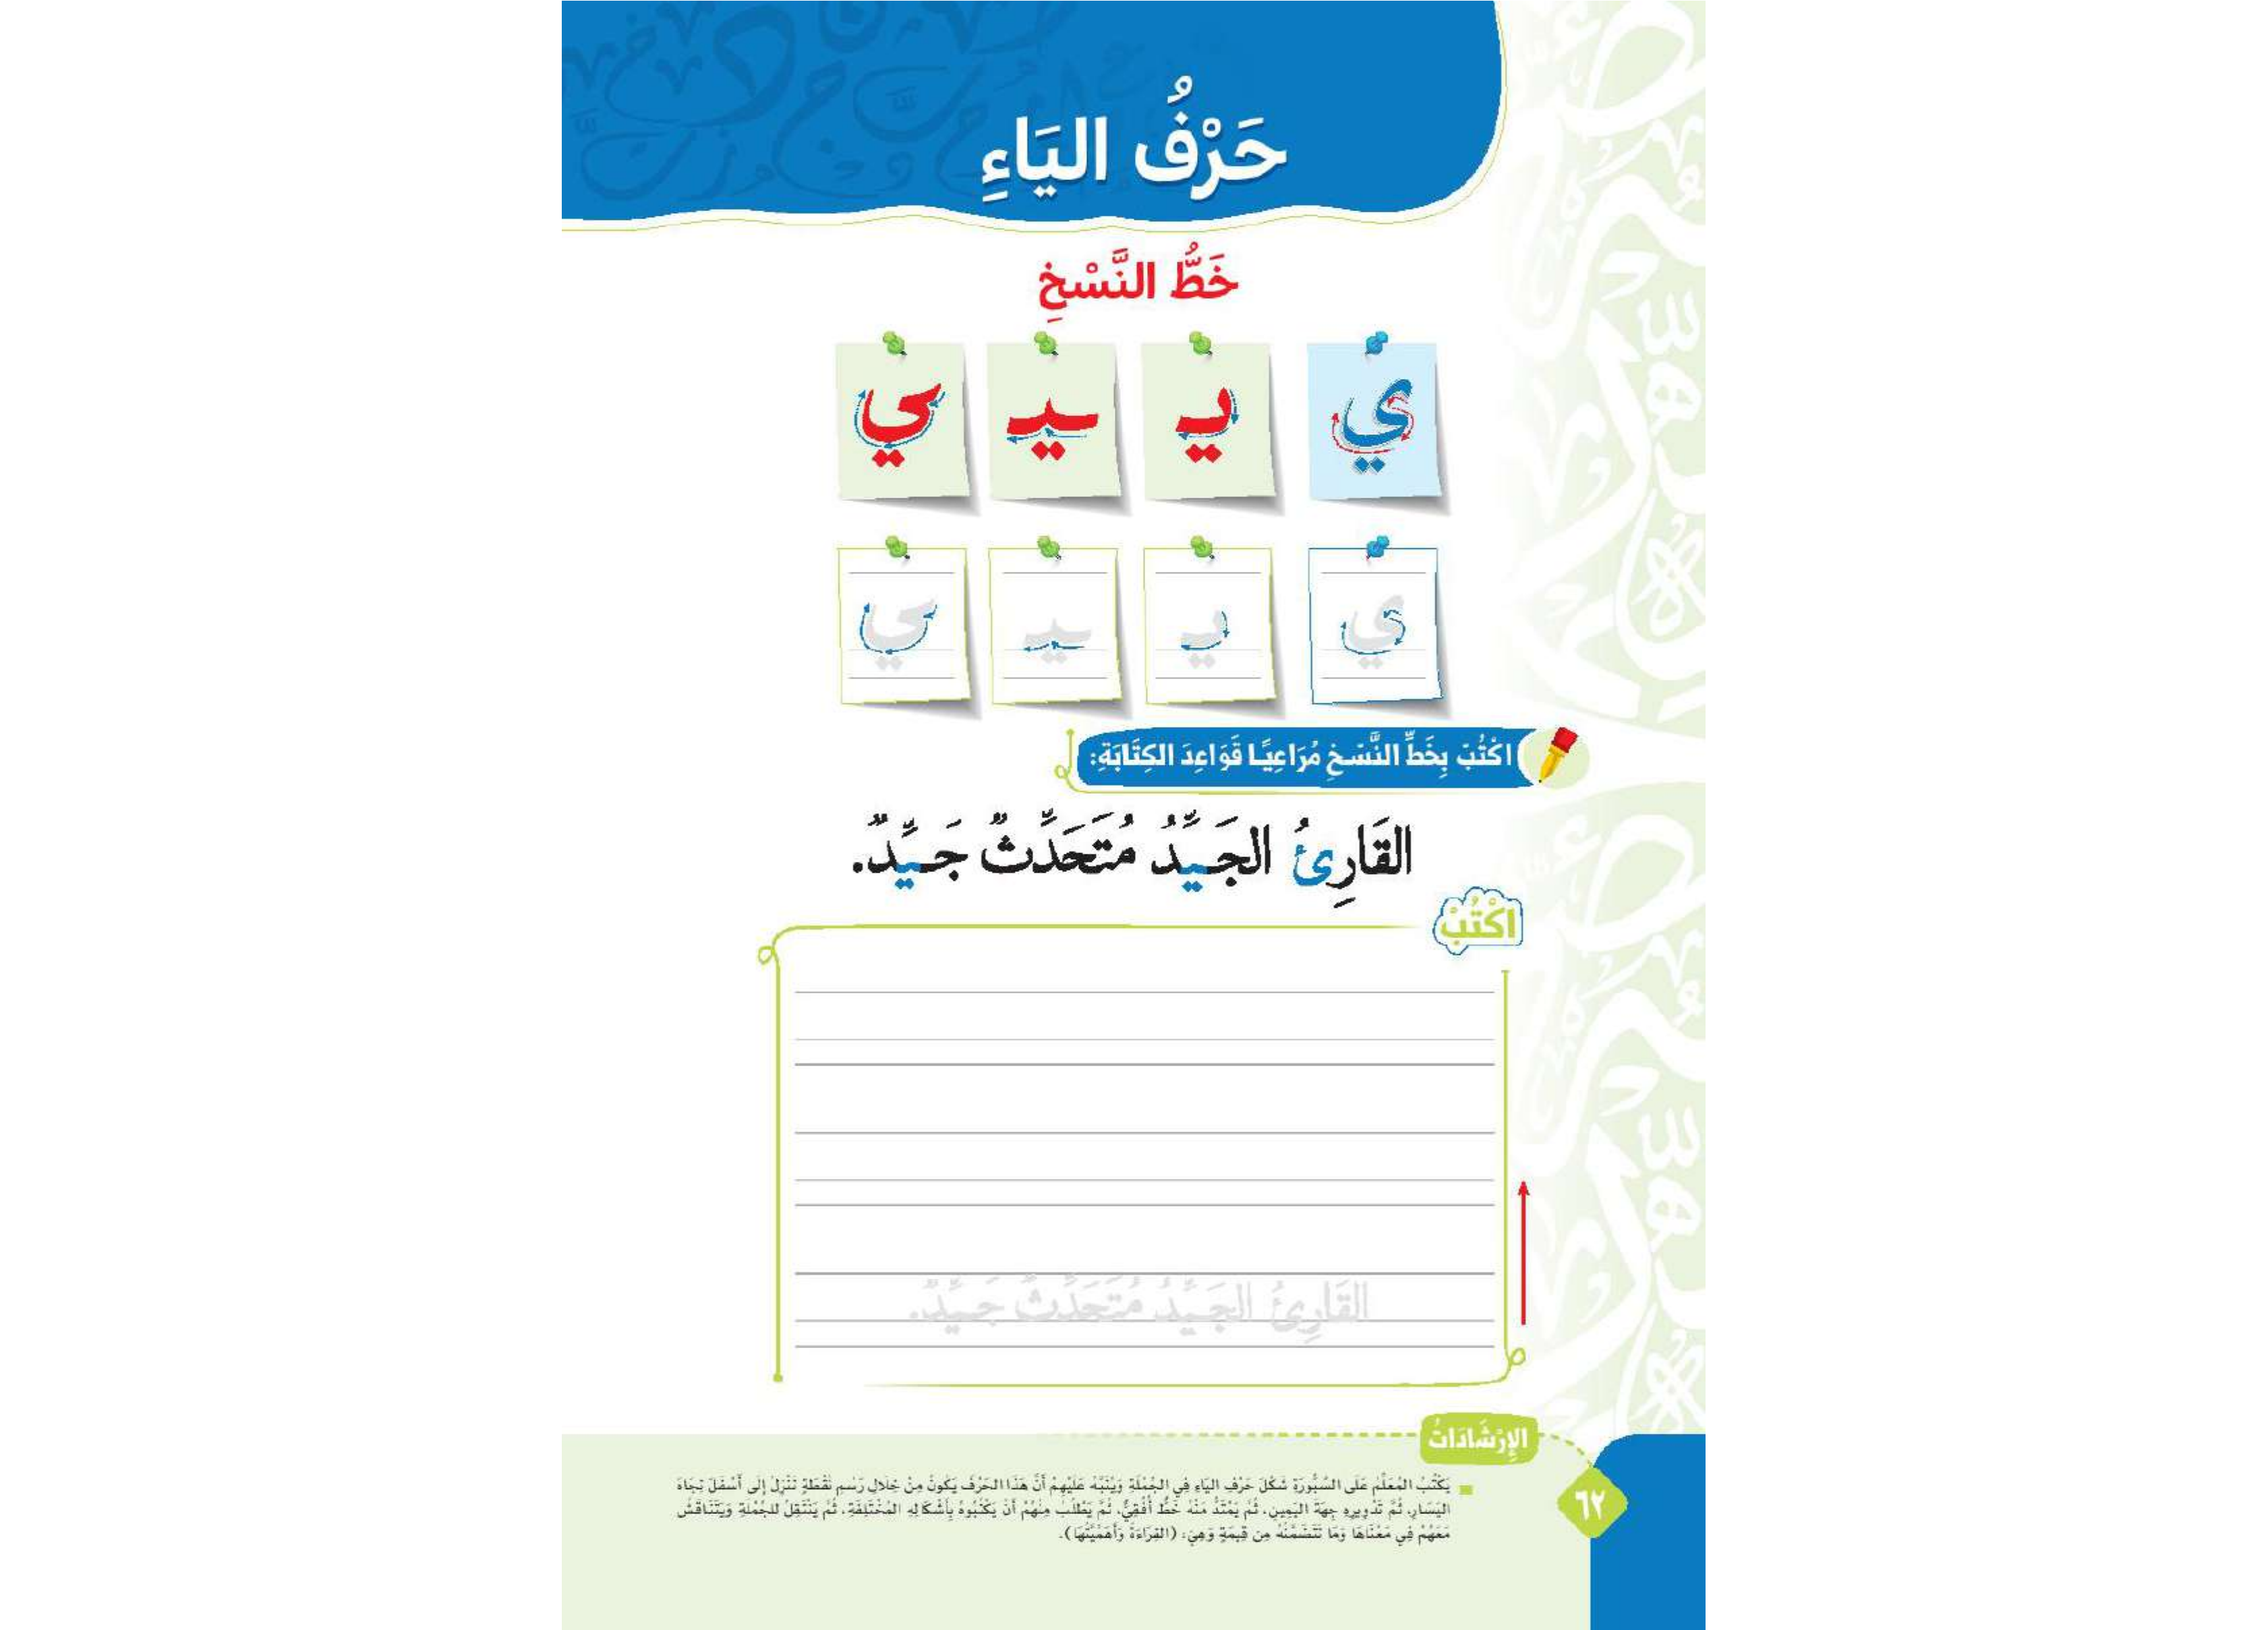 حَرْفُ اليَاءِ
خَطُّ النَّسْخِ
ي يـ ـيـ ـي
ي يـ ـيـ ـي
اكْتُبْ بِخَطِّ النَّسْخِ مُرَاعِيًا قَوَاعِدَ الكِتَابَةِ:
القَارِئُ الجَيِّدُ مُتَحَدِّثٌ جَيِّدٌ.
اكْتُبْ
القَارِئُ الجَيِّدُ مُتَحَدِّثٌ جَيِّدٌ.
الإِرْشَادَاتُ
يَكْتُبُ المُعَلِّمُ عَلَى السَّبُّورَةِ شَكْلَ حَرْفِ اليَاءِ فِي الجُمْلَةِ وَيُنَبِّهُ عَلَيْهِمْ أَنَّ هَذَا الحَرْفَ يَكُونُ مِنْ خِلَالِ رَسْمِ نُقْطَةٍ تَنْزِلُ إِلَى أَسْفَلَ تِجَاهَ
اليَسَارِ، ثُمَّ تَدْوِيرِهِ جِهَةَ اليَمِينِ، ثُمَّ يَمْتَدُّ مِنْهُ خَطٌّ أُفُقِيٌّ، ثُمَّ يَطْلُبُ مِنْهُمْ أَنْ يَكْتُبُوهُ بِأَشْكَالِهِ المُخْتَلِفَةِ، ثُمَّ يَنْتَقِلُ لِلجُمْلَةِ وَيَتَنَاقَشُ
مَعَهُمْ فِي مَعْنَاهَا وَمَا تَتَضَمَّنُهُ مِن قِيمَةٍ وَهِيَ: (القِرَاءَةُ وَأَهَمِّيَّتُهَا).
٦٢